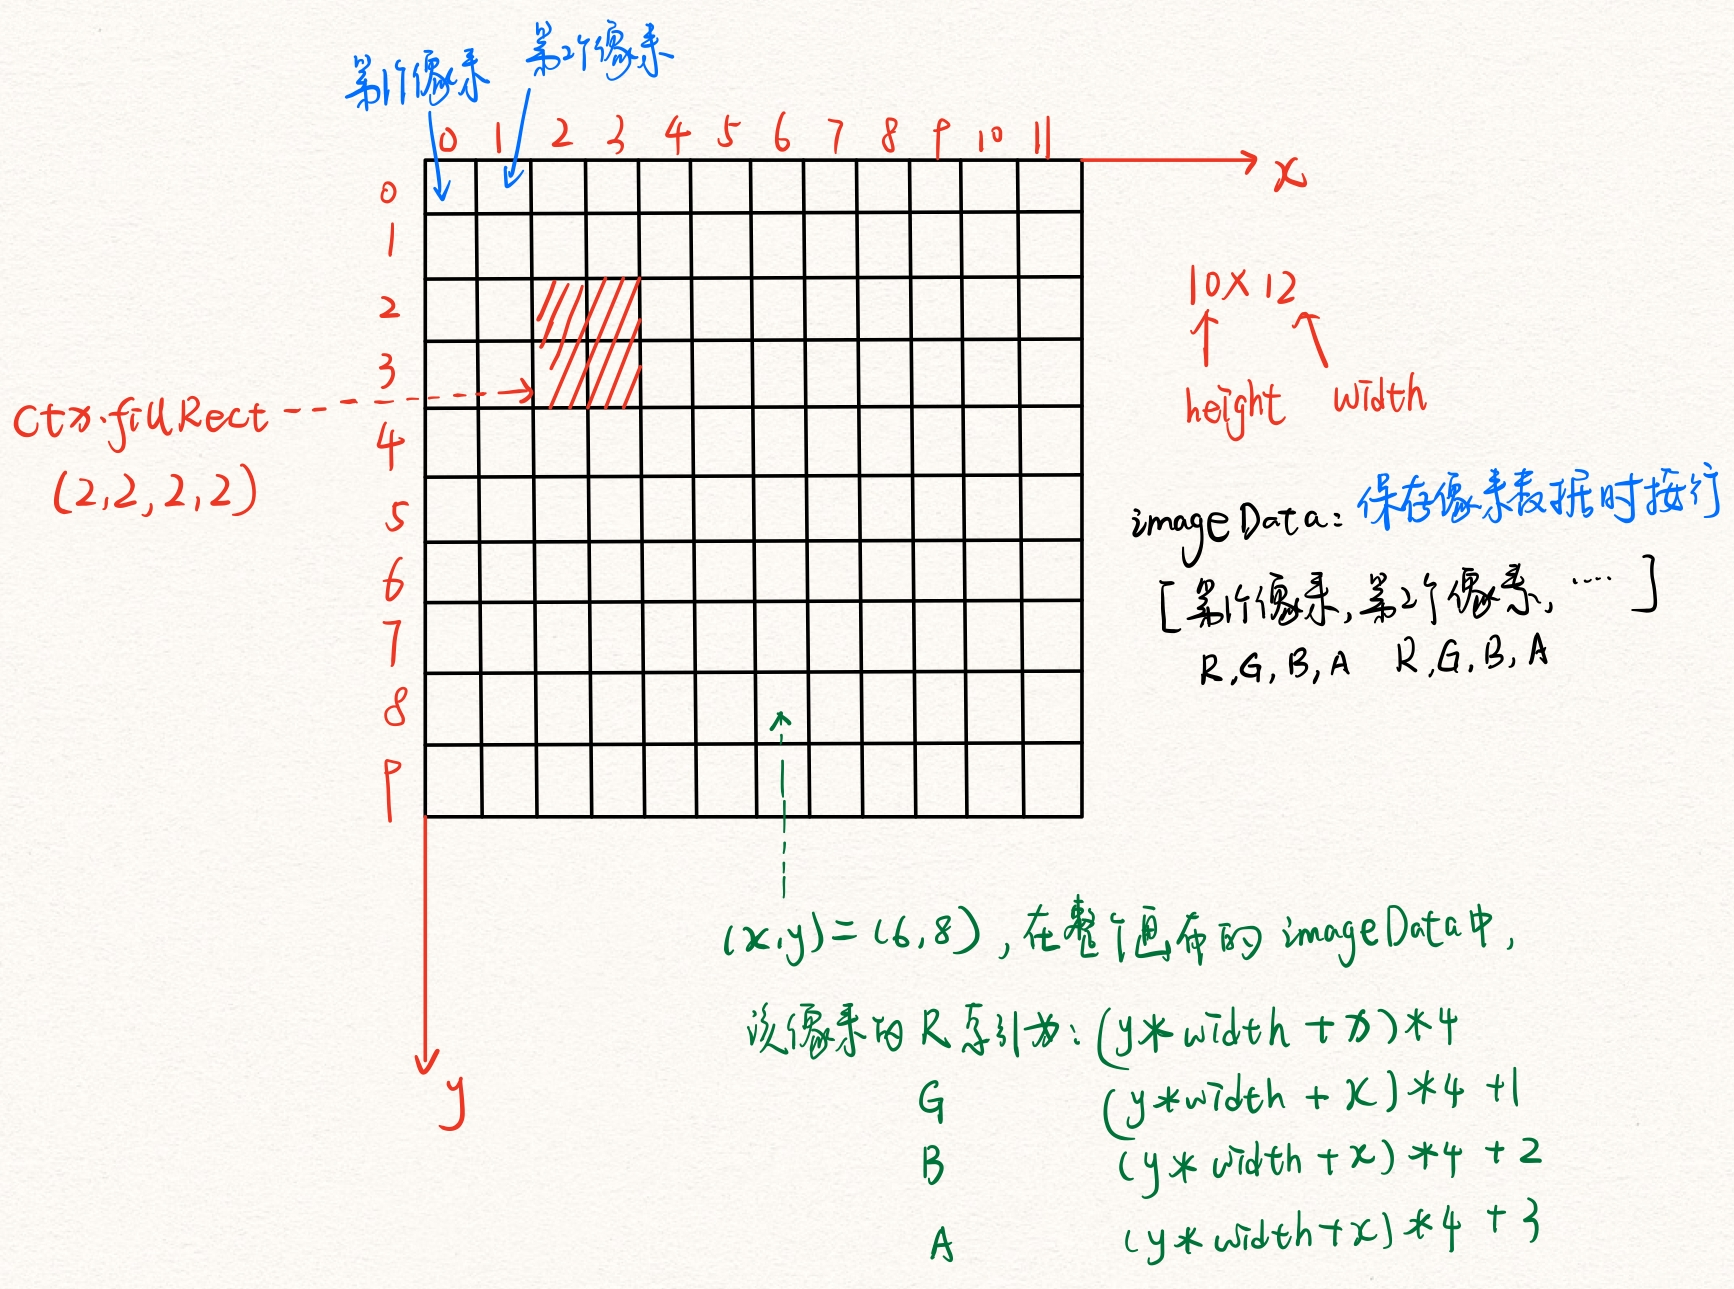 第1个像素 第2个像素
0 1 2 3 4 5 6 7 8 9 10 11
x
0
1
2
3
4
5
6
7
8
9
y
ctx.fillRect
(2,2,2,2)
10×12
height width
imageData: 保存像素数据时按行
[第1个像素,第2个像素, ····]
R,G,B,A R,G,B,A
(x,y)=(6,8),在整个画布的imageData中,
该像素的R索引为:(y*width+x)*4
G (y*width+x)*4+1
B (y*width+x)*4+2
A (y*width+x)*4+3